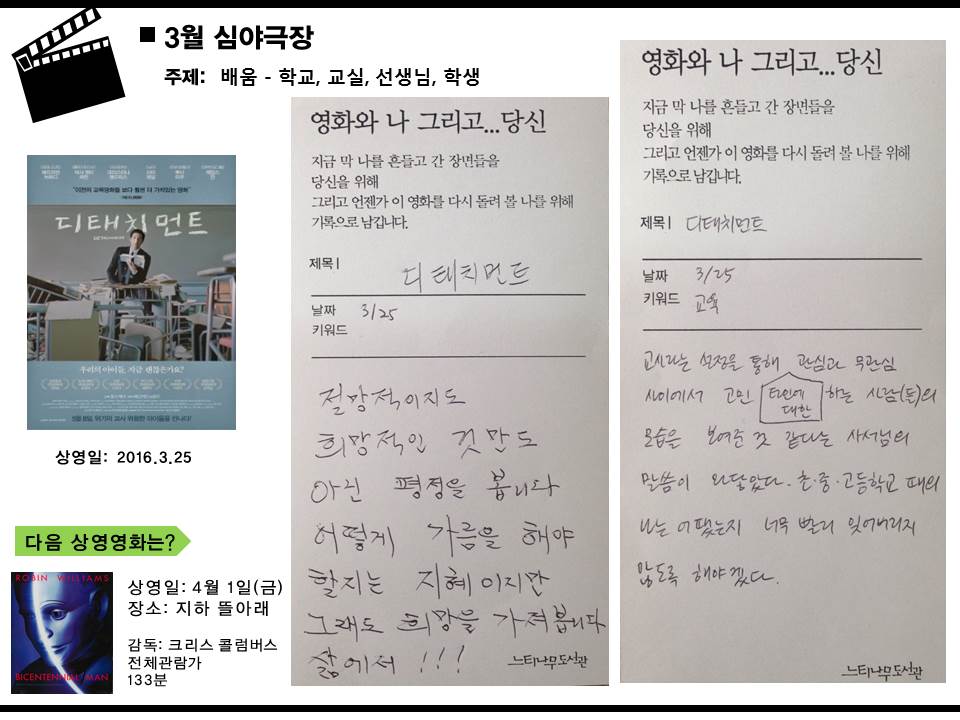 ■ 3월 심야극장
주제: 배움 - 학교, 교실, 선생님, 학생
디태치먼트
우리의 아이들, 지금 괜찮은가요?
상영일: 2016.3.25
다음 상영영화는?
ROBIN WILLIAMS
BICENTENNIAL MAN
상영일: 4월 1일(금)
장소: 지하 뜰아래
감독: 크리스 콜럼버스
전체관람가
133분
영화와 나 그리고...당신
지금 막 나를 흔들고 간 장면들을
당신을 위해
그리고 언젠가 이 영화를 다시 돌려 볼 나를 위해
기록으로 남깁니다.
제목 | 디태치먼트
날짜 3/25
키워드
절망적이지도
희망적인 것만도
아닌 평정을 봅니다
어떻게 가름을 해야
할지는 지혜이지만
그래도 희망을 가져봅니다
삶에서 !!!
느티나무도서관
영화와 나 그리고...당신
지금 막 나를 흔들고 간 장면들을
당신을 위해
그리고 언젠가 이 영화를 다시 돌려 볼 나를 위해
기록으로 남깁니다.
제목 | 디태치먼트
날짜 3/25
키워드 교육
교사라는 설정을 통해 관심과 무관심
사이에서 고민 타인에 대한 하는 사람(들)의
모습을 보여준 것 같다는 사서님의
말씀이 와닿았다. 초·중·고등학교 때의
나는 어땠는지 너무 빨리 잊어버리지
않도록 해야겠다.
느티나무도서관